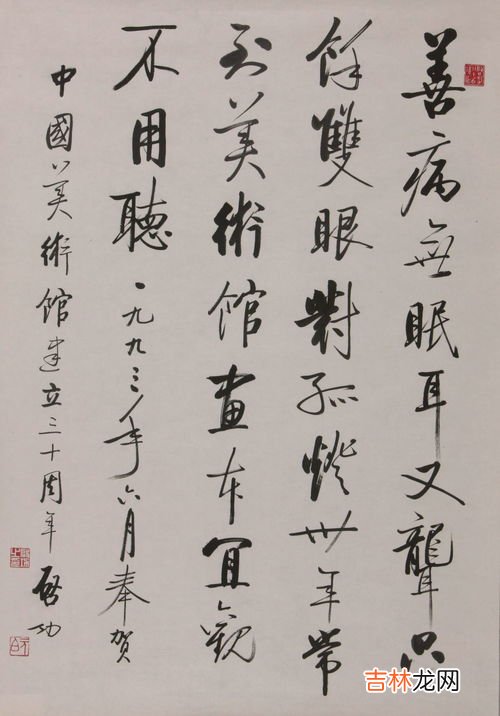 善病無眠耳又聾只
餘雙眼對孤燈卅年常
到美術館畫本宜觀
不用聽一九九三年六月奉賀
中國美術館建立三十周年啓功
吉林龙网